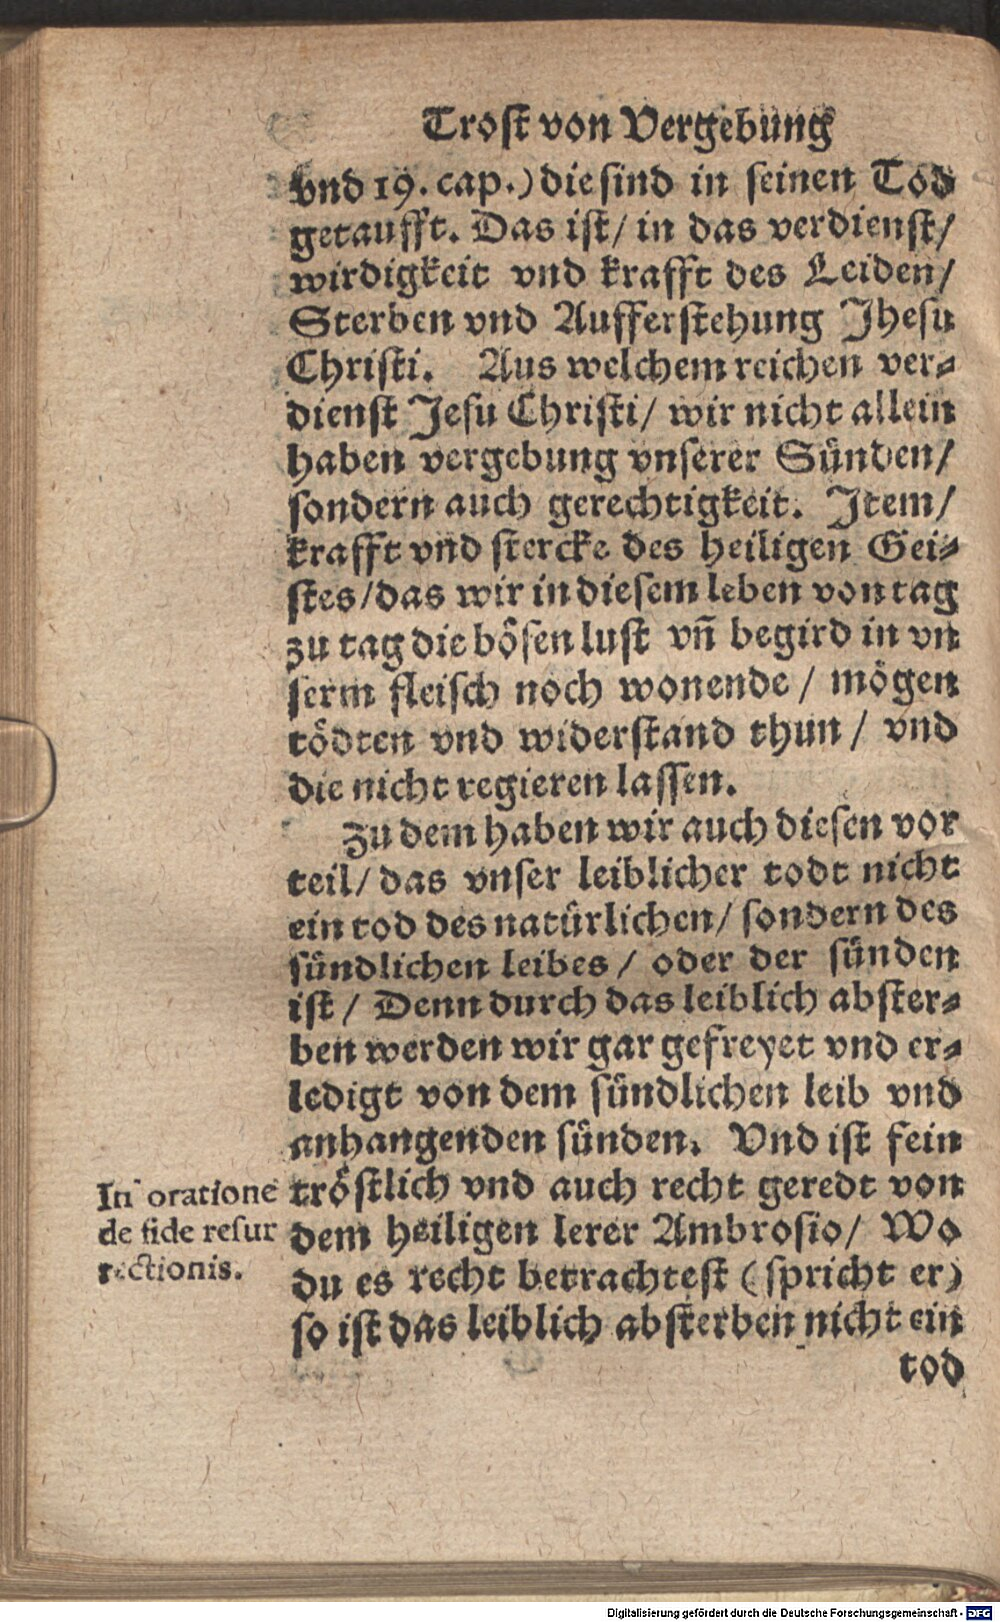 Trost von Vergebung
vnd 19. cap.) die sind in seinen Tod
getaufft. Das ist/ in das verdienst/
wirdigkeit vnd krafft des Leiden/
Sterben vnd Aufferstehung Jhesu
Christi. Aus welchem reichen ver-
dienst Jesu Christi/ wir nicht allein
haben vergebung vnserer Sünden/
sondern auch gerechtigkeit. Jtem/
krafft vnd stercke des heiligen Gei-
stes/das wir in diesem leben von tag
zu tag die bösen lust vn̄ begird in vn
serm fleisch noch wonende / mögen
tödten vnd widerstand thun / vnd
die nicht regieren lassen.
Zu dem haben wir auch diesen vor
teil/ das vnser leiblicher todt nicht
ein tod des natürlichen/ sondern des
sündlichen leibes / oder der sünden
ist / Denn durch das leiblich abster-
ben werden wir gar gefreyet vnd er-
ledigt von dem sündlichen leib vnd
anhangenden sünden. Vnd ist fein
tröstlich vnd auch recht geredt von
dem heiligen lerer Ambrosio/ Wo
du es recht betrachtest (spricht er)
so ist das leiblich absterben nicht ein
tod
In oratione
de fide resur
rectionis.
Digitalisierung gefördert durch die Deutsche Forschungsgemeinschaft - DFG